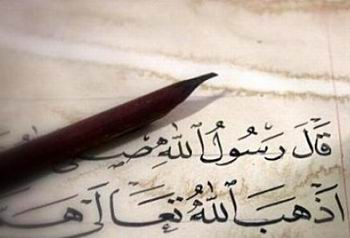 قَالَ رَسُولُ ٱللَّهِ صَلَّى
أَذْهَبَ ٱللَّهُ تَعَالَىٰ